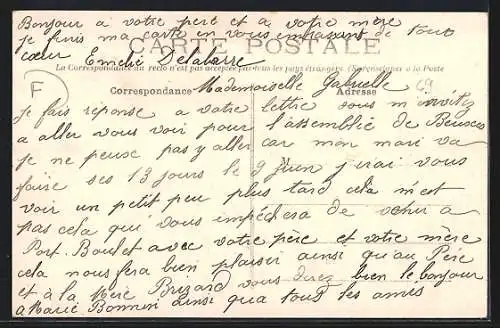 Bonjour a votre pere et a votre mère
je finis ma carte en vous embrassant de tout
cœur Emelie Delabarre
CARTE POSTALE
La Correspondance au recto n'est pas acceptée par tous les pays étrangers. (Se renseigner à la Poste)
F
Correspondance
Adresse
69
Mademoiselle Gabrielle
je fais réponse a votre lettre vous m'invitez
a aller vous voir pour l'assemblée de
je ne peuse pas y aller car mon mari va
faire ses 13 jours le 9 juin j'irai vous
voir un petit peu plus tard cela m'est
pas cela qui vous empéchera de venir a
Port. Boulet avec votre père et votre mère
cela nous fera bien plaisir ainsi qu'au Père
et à la Mère Brizard vous direz bien le bonjour
a Marie Bonnin ainsi qua tous les amis